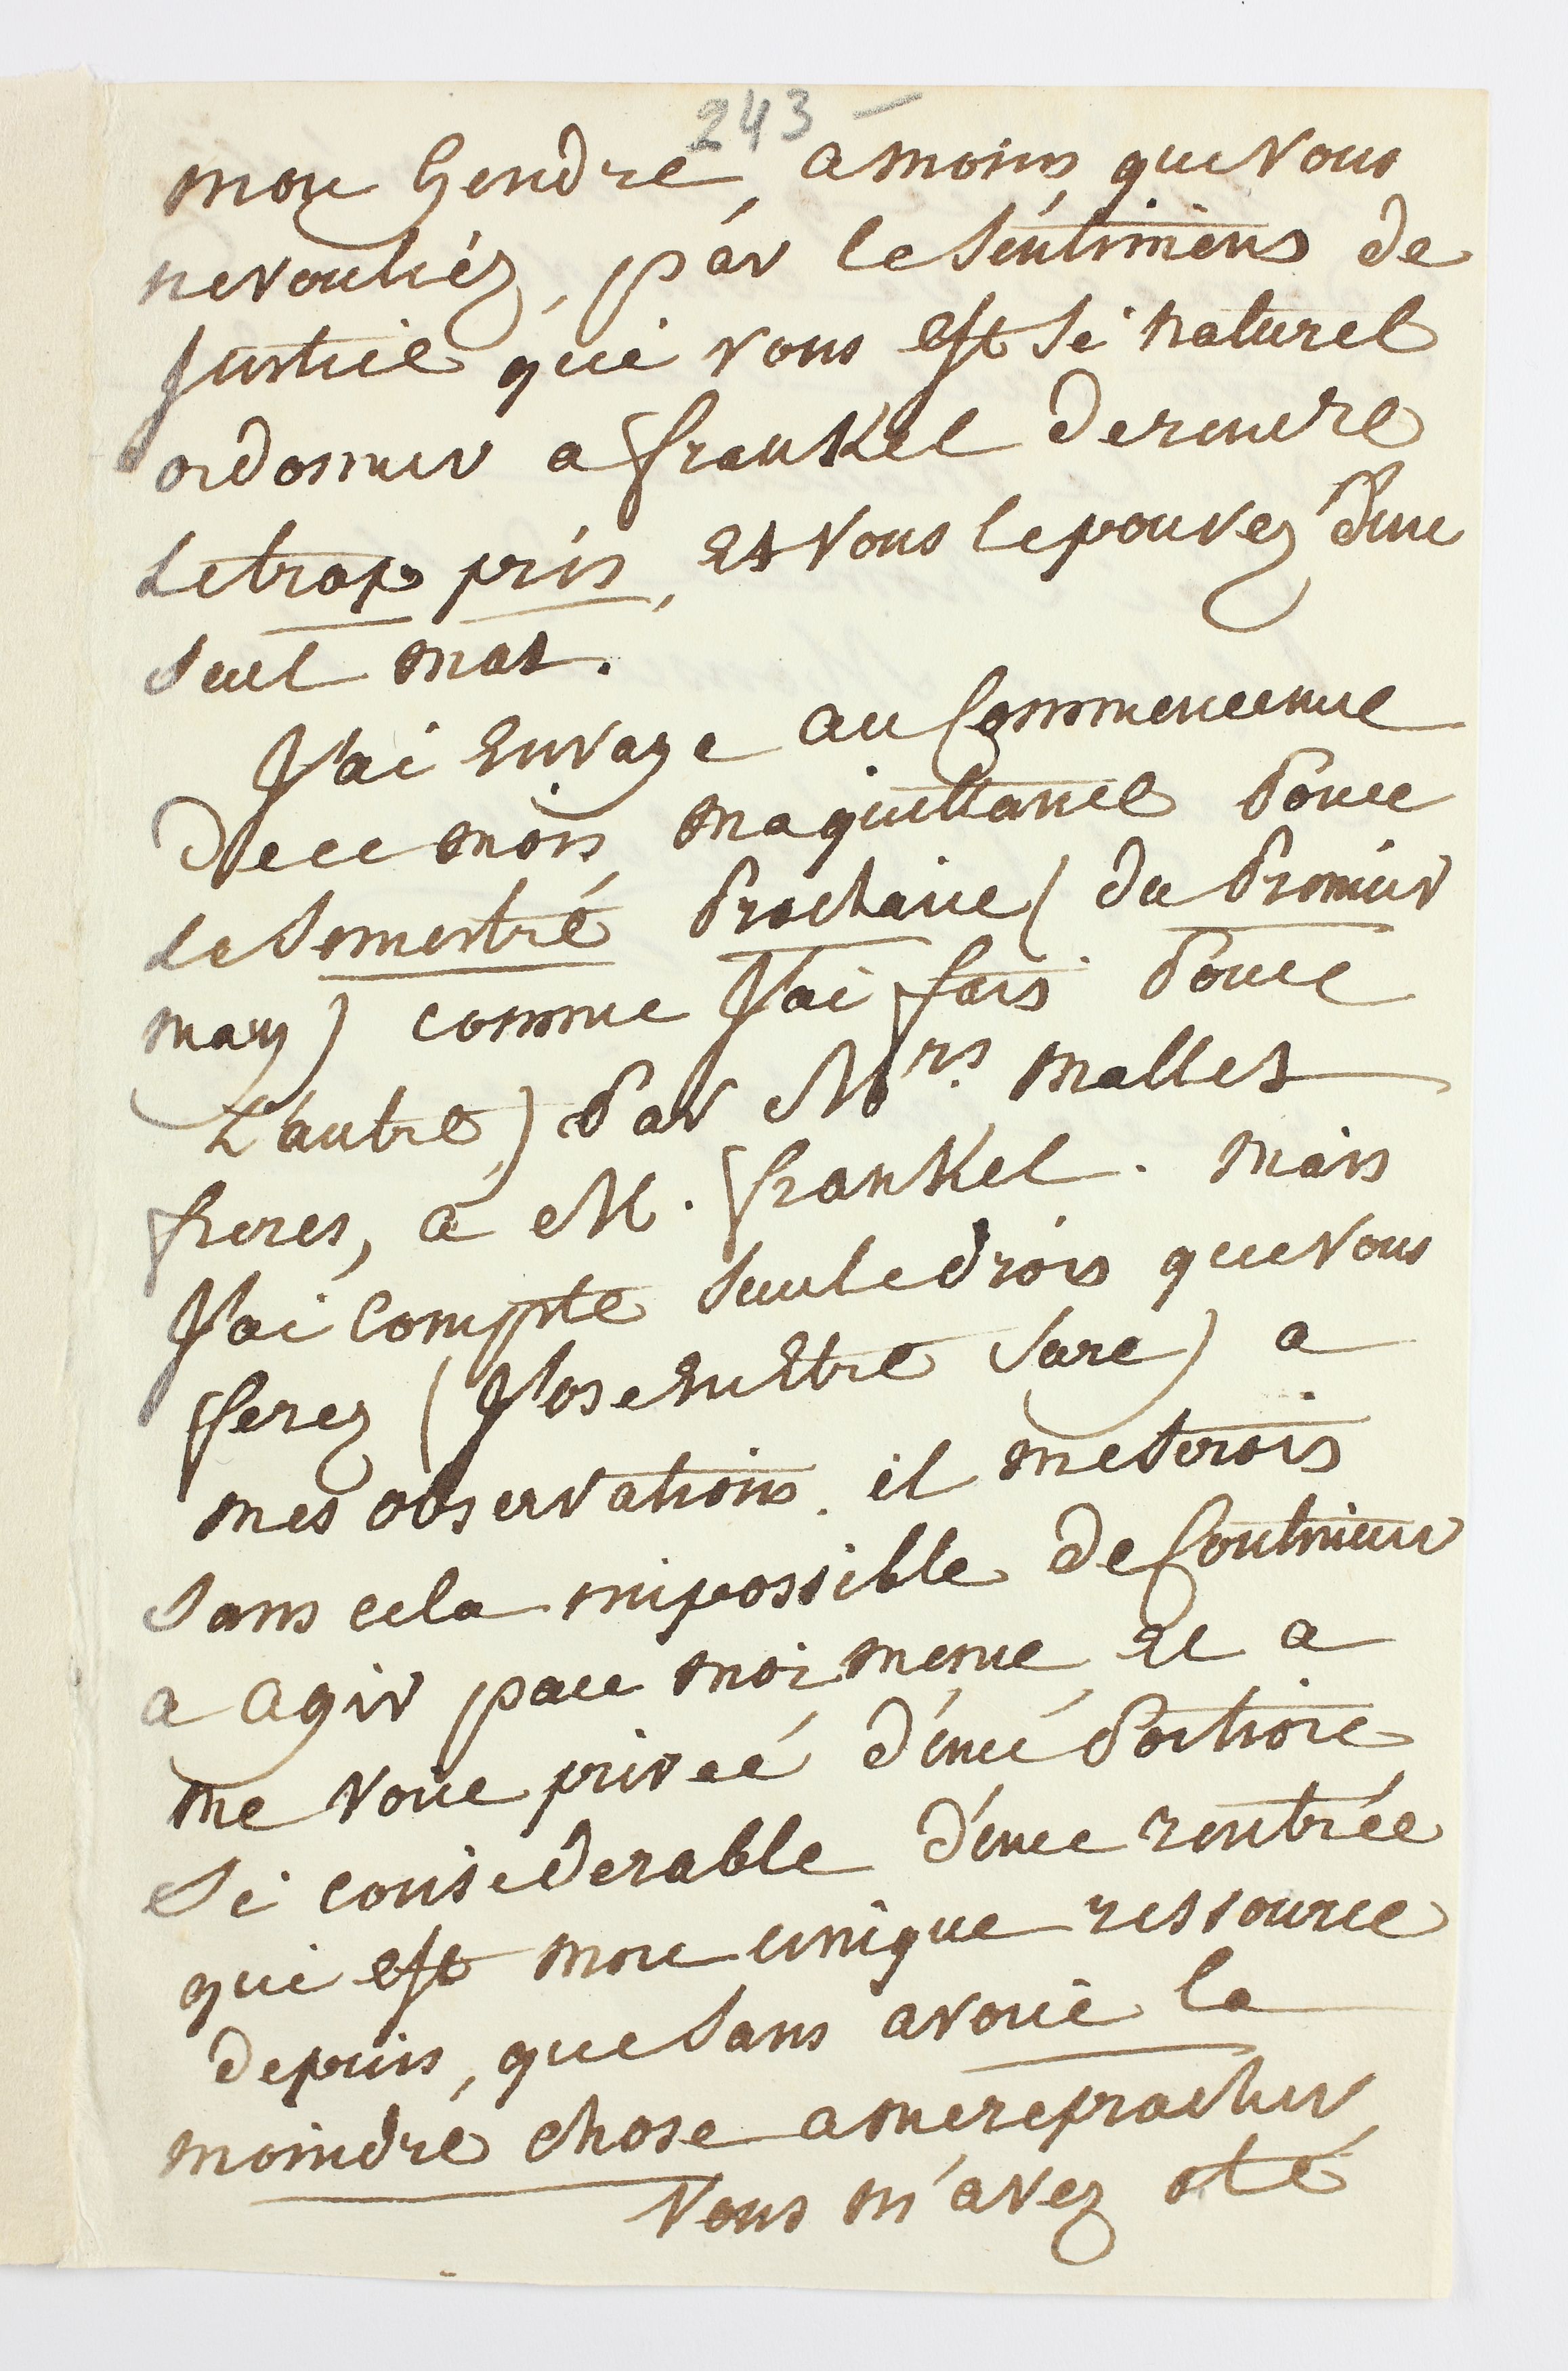 243 –
mon Gendre, a moins que Vous
ne vouliéz, pár le Séntimens de
Justice qui vous est Si naturel
ordonner a frankel de rendre
Le trop pris, Et Vous le pouvez d'un
Seul mot.
J'ai Envoye au Commencemen
de ce mois, ma quittance Pour
Le Semestré Prochain (du Premier
may) comme J'ai fais Pour
L'autre) Par Mrs. mallet
freres, a M. frankel. mais
J'ai Compte Sur le drois que Vous
ferez (J'ose En Etre Sure) a
mes observations. il me Serois
Sans cela impossible de Continuer
a agir par moi meme, Et a
me voir priveé d'une Portion
Si considerable d'une rentrée
qui est mon unique ressource
depuis, que Sans avoir la
moindre chose a me reprocher
Vous m'avez oté